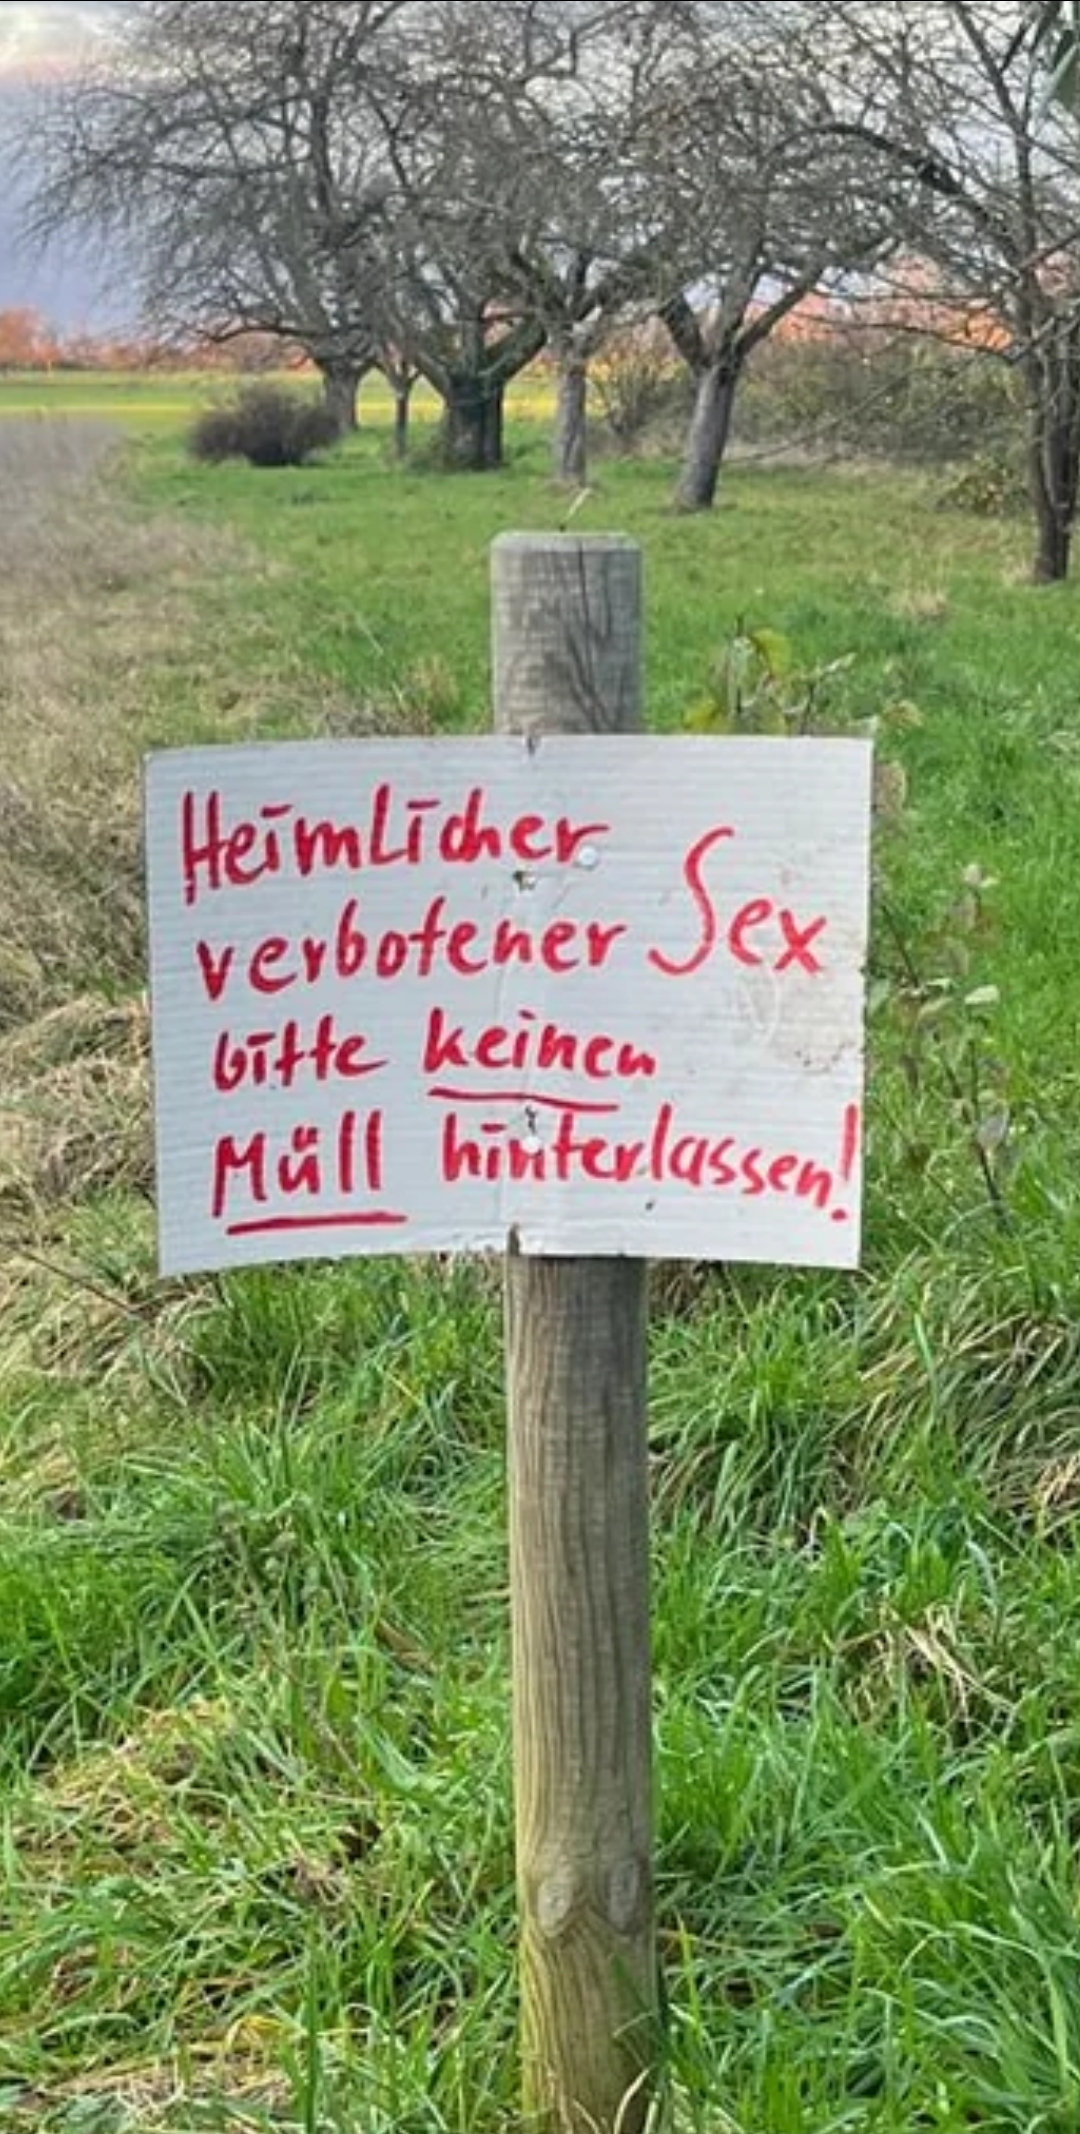 Heimlicher
verbotener Sex
bitte keinen
Müll hinterlassen!